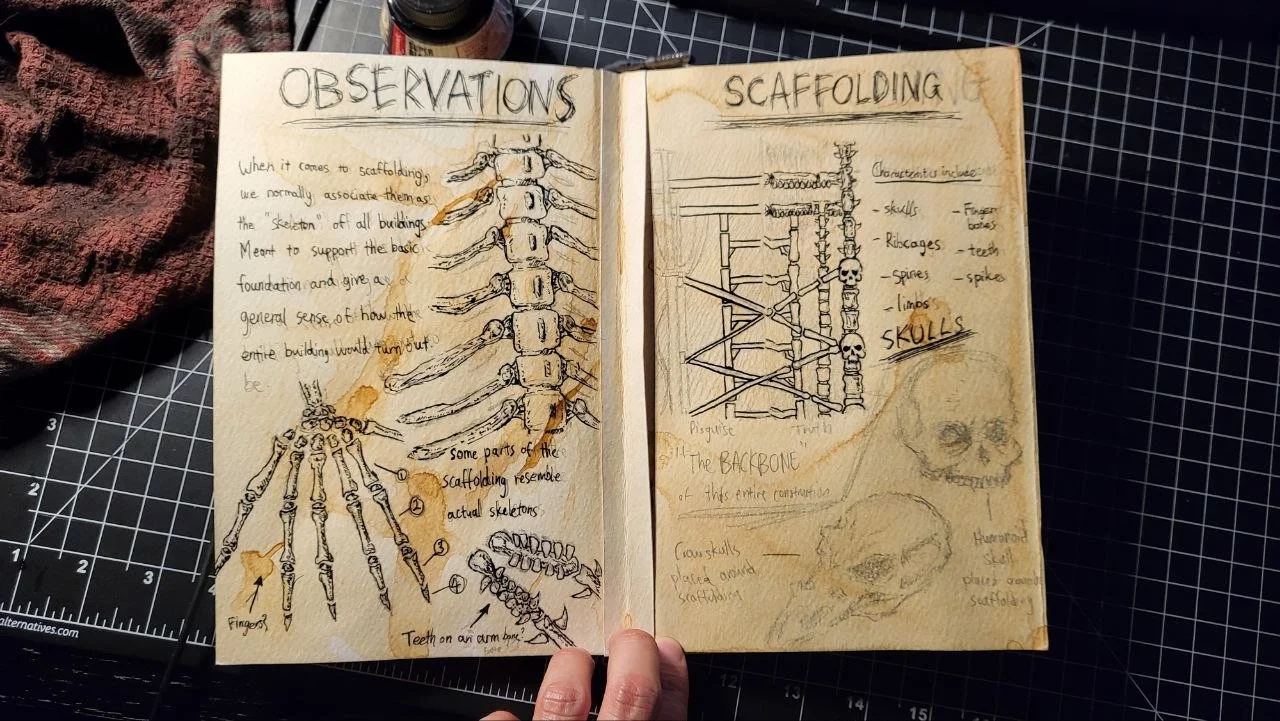 OBSERVATIONS
When it comes to scaffolding,
we normally associate them as
the "skeleton" of all buildings.
Meant to support the basic
foundation and give a
general sense of how the
entire building would turn out
be
some parts of the
scaffolding resemble
actual skeletons
1
2
3
4
Fingers?
Teeth on an arm bone?
SCAFFOLDING
Characteristics include
- skulls
- Ribcages
- spines
- limbs
- Finger
bones
- teeth
- spikes
SKULLS
Disguise
Truth
"The BACKBONE"
of this entire construction
Crow skulls
placed around
scaffolding
Humanoid
skull
places around
scaffolding
3
2
1
2
3
alternatives.com
12
13
14
15